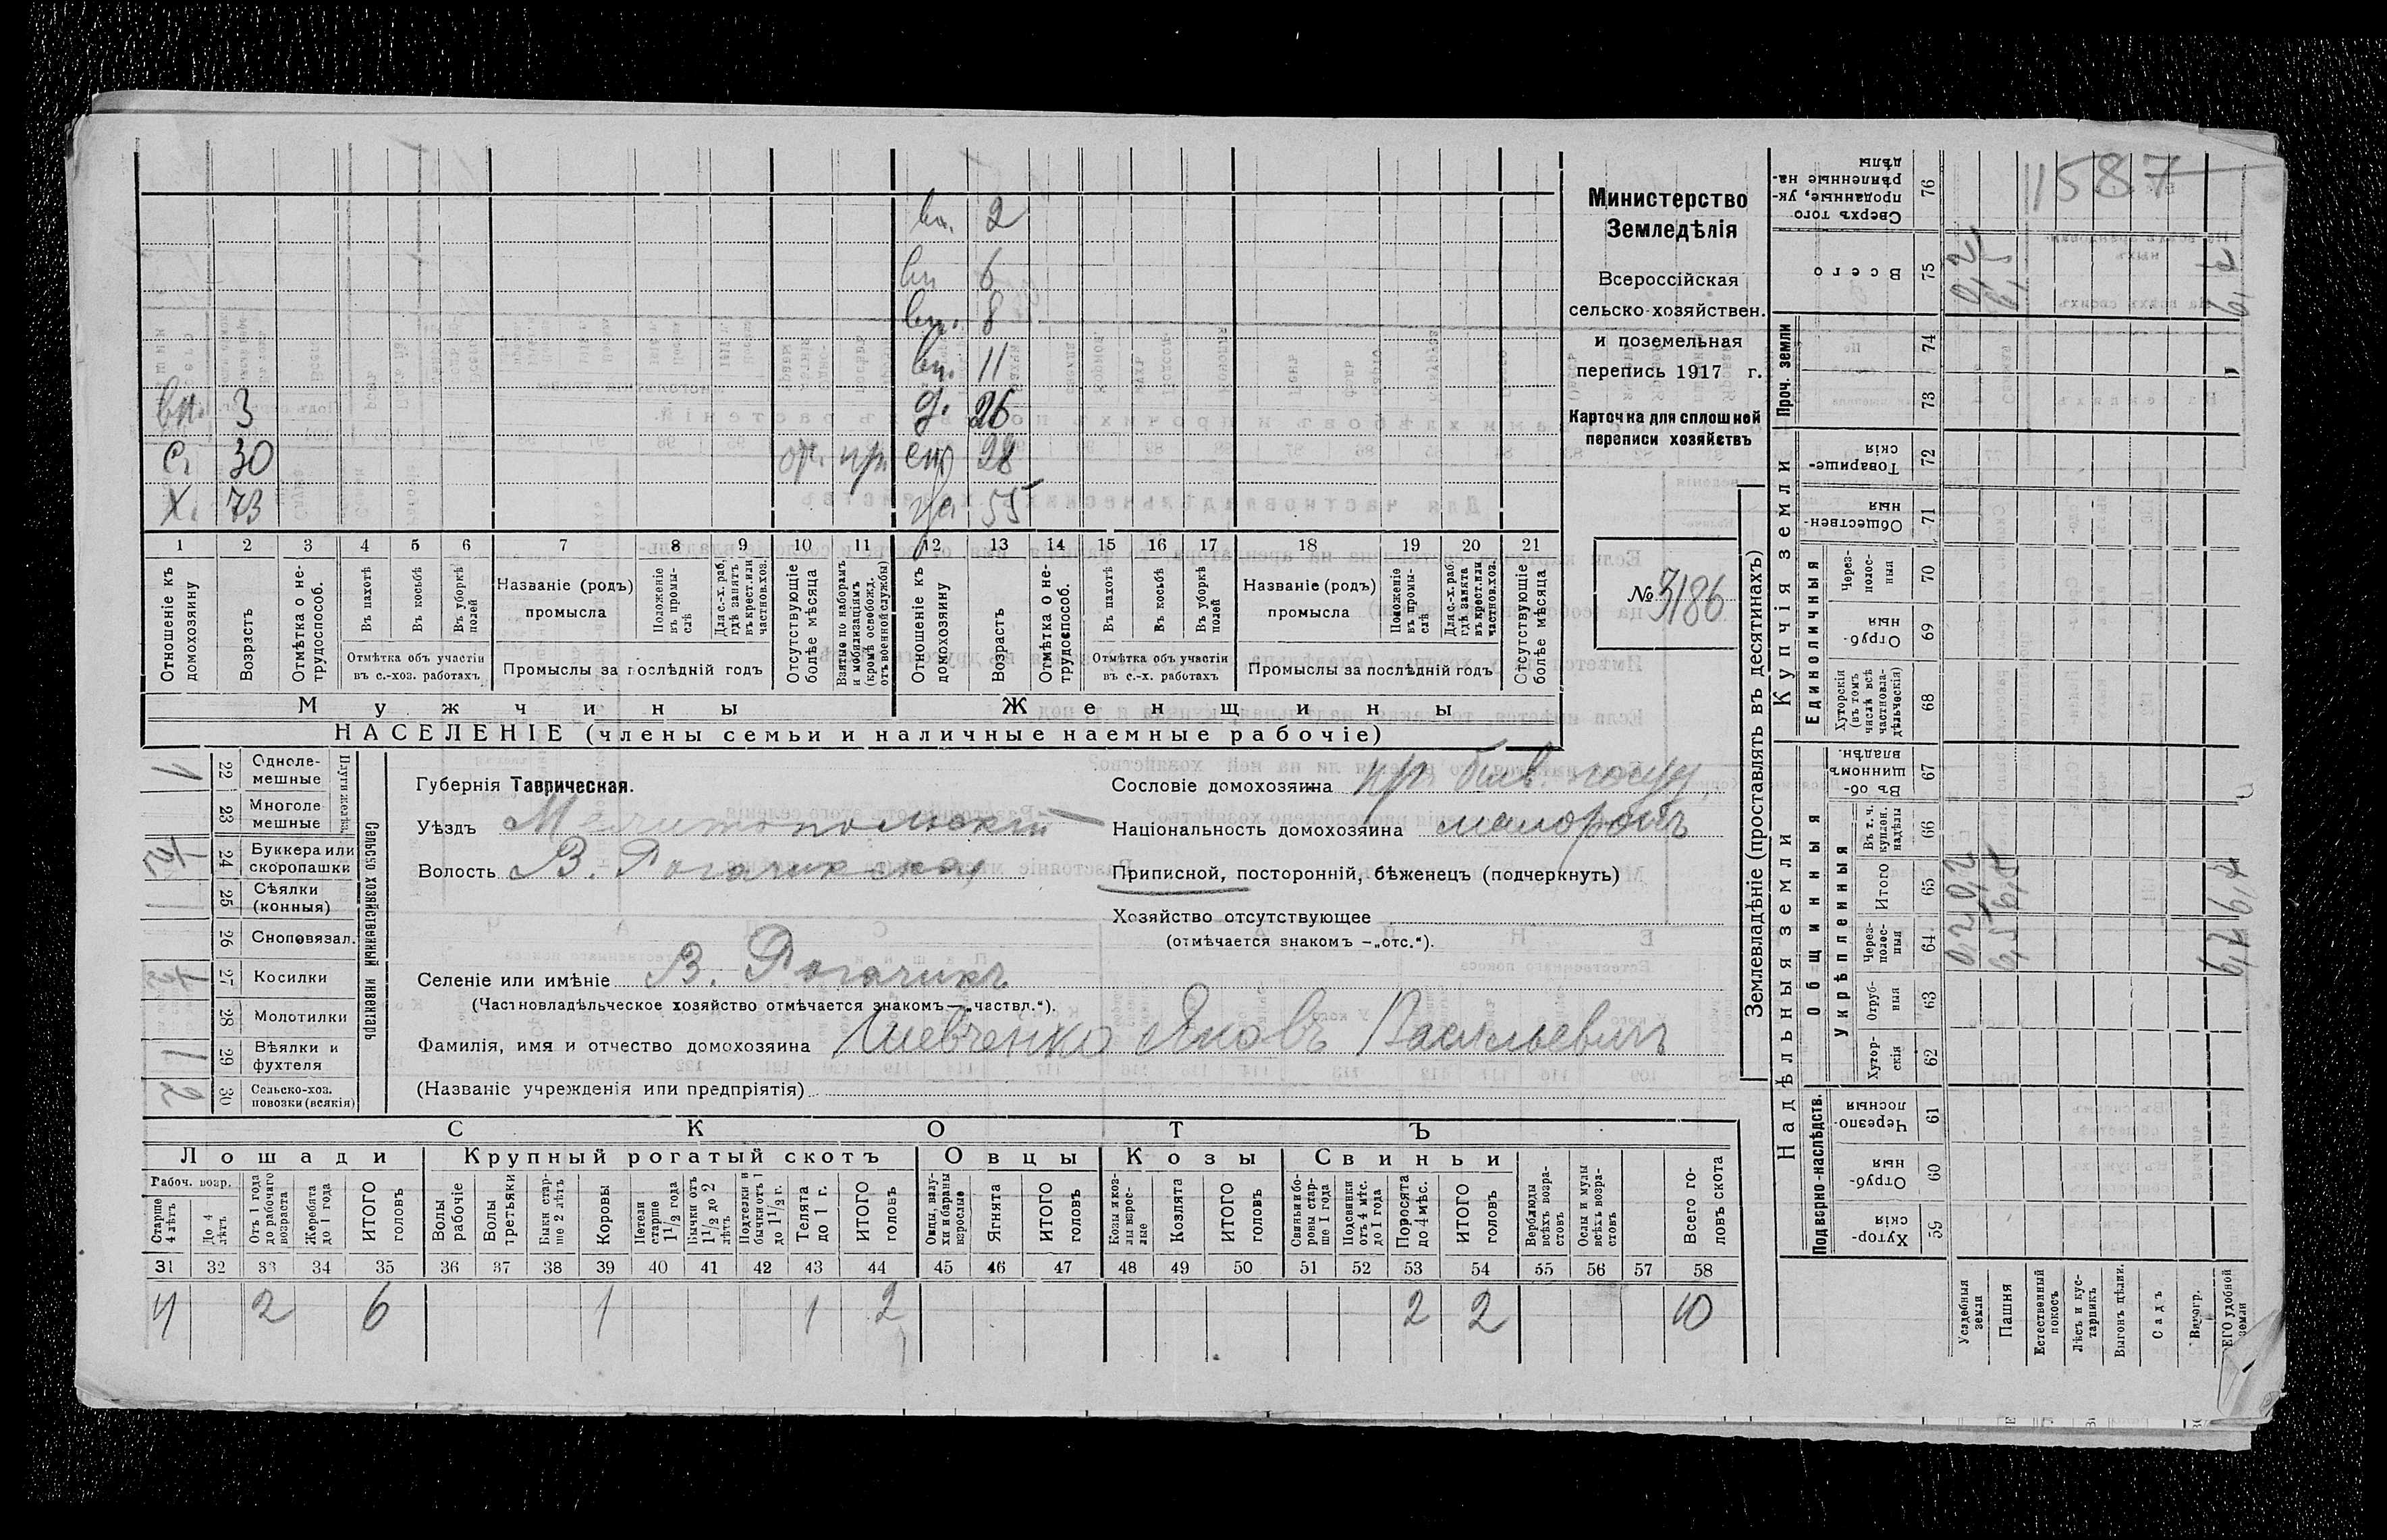 вн. 2
вн 6
вн. 8
вн. 11
вн. 3 д. 26
с. 30 от. пр. 28
х. 73 55
1 2 3 4 5 6 7 8 9 10 11 12 13 14 15 16 17 18 19 20 21
Отношеніе къ домохозяину
Возрастъ
Отмѣтка о не-
трудоспособ.
Въ пахотѣ
Въ косьбѣ
Въ уборкѣ полей
Отмѣтка объ участіи
въ с.-хоз. работахъ
Названіе (родъ)
промысла
Положеніе въ промы-
слѣ
Для с.-х. раб,
гдѣ занятъ
въ крест. или
частнов. хоз.
Промыслы за послѣдній годъ
Отсутствующіе
болѣе мѣсяца
Взятые по наборамъ
и мобилизаціямъ
(кромѣ освобожд.
отъ военной службы)
Отношеніе къ
домохозяину
Возрастъ
Отмѣтка о не-
трудоспособ.
Въ пахотѣ
Въ косьбѣ
Въ уборкѣ
полей
Отмѣтка объ участіи
въ с.-х. работахъ
Названіе (родъ)
промысла
Положеніе
въ промы-
слѣ
Для с.-х. раб.
гдѣ занята
въ крест. или
частнов. хоз.
Промыслы за послѣдній годъ
Отсутствующіе
болѣе мѣсяца
Мужчины Женщины
НАСЕЛЕНІЕ (члены семьи и наличные наемные рабочіе)
Министерство
Земледѣлія
Всероссійская
сельско-хозяйствен.
и поземельная
перепись 1917 г.
Карточка для сплошной
переписи хозяйствъ
№ 3186
Сельско хозяйственный инвентарь
Плуги желѣзн.
1 22 Одноле-
мешные
23 Многоле
мешные
24 Буккера или
скоропашки
25 Сѣялки
(конныя)
26 Сноповязал.
27 Косилки
28 Молотилки
1 29 Вѣялки и
фухтеля
2 30 Сельско-хоз.
повозки (всякія)
Губернія Таврическая.
Уѣздъ Мелитопольскій
Волость В. Рогачикская
Селеніе или имѣніе В. Рогачикъ
(Частновладѣльческое хозяйство отмѣчается знакомъ—„частвл.“).
Фамилія, имя и отчество домохозяина Шевченко Яковъ Васильевичъ
(Названіе учрежденія или предпріятія)
Сословіе домохозяина кр. быв. госуд.
Національность домохозяина малороссъ
Приписной, посторонній, бѣженецъ (подчеркнуть)
Хозяйство отсутствующее
(отмѣчается знакомъ —„отс.“).
СКОТЪ
Лошади Крупный рогатый скотъ Овцы Козы Свиньи
Рабоч. возр.
Старше
4 лѣтъ
До 4
лѣтъ
Отъ 1 года
до рабочаго
возраста
Жеребята
до 1 года
ИТОГО
головъ
Волы
рабочіе
Волы
третьяки
Быки стар-
ше 2 лѣтъ
Коровы
Нетели
старше
1½ года
Бычки отъ
1½ до 2
лѣтъ
Подтелки и
бычки отъ 1
до 1½ г.
Телята
до 1 г.
ИТОГО
головъ
Овцы, валу-
хи и бараны
взрослые
Ягнята
ИТОГО
головъ
Козы и коз-
лы взрос-
лые
Козлята
ИТОГО
головъ
Свиньи и бо-
ровы стар-
ше 1 года
Подсвинки
отъ 4 мѣс.
до 1 года
Поросята
до 4 мѣс.
ИТОГО
головъ
Верблюды
всѣхъ возра-
стовъ
Ослы и мулы
всѣхъ возра-
стовъ
Всего го-
ловъ скота
31 32 33 34 35 36 37 38 39 40 41 42 43 44 45 46 47 48 49 50 51 52 53 54 55 56 57 58
4 2 6 1 1 2 2 2 10
Землевладѣніе (проставлять въ десятинахъ)
Надѣльныя земли Купчія земли Проч. земли
1587
Сверхъ того
проданные, ук-
рѣпленные на-
дѣлы
76
Всего
75
0,2
74
73
Товарище-
скія
72
Обществен-
ныя
71
Единоличныя
Через-
полос-
ныя
70
Отруб-
ныя
69
Хуторскія
(въ томъ
числѣ всѣ
частновла-
дѣльческія)
68
Общинныя
Въ об-
щинномъ
владѣн.
67
Укрѣпленныя
Въ т. ч.
куплен.
надѣлы
66
Итого
65
0,2 6,5
Через-
полос-
ныя
64
0,2 6,5
Отруб-
ныя
63
Хутор-
скія
62
Подворно-наслѣдств.
Черезпо-
лосныя
61
Отруб-
ныя
60
Хутор-
скія
59
Усадебныя
земля
Пашня
Естественный
покосъ
Лѣсъ и кус-
тарникъ
Выгонъ цѣлин.
Садъ
Виногр.
ЕГО удобной
земли